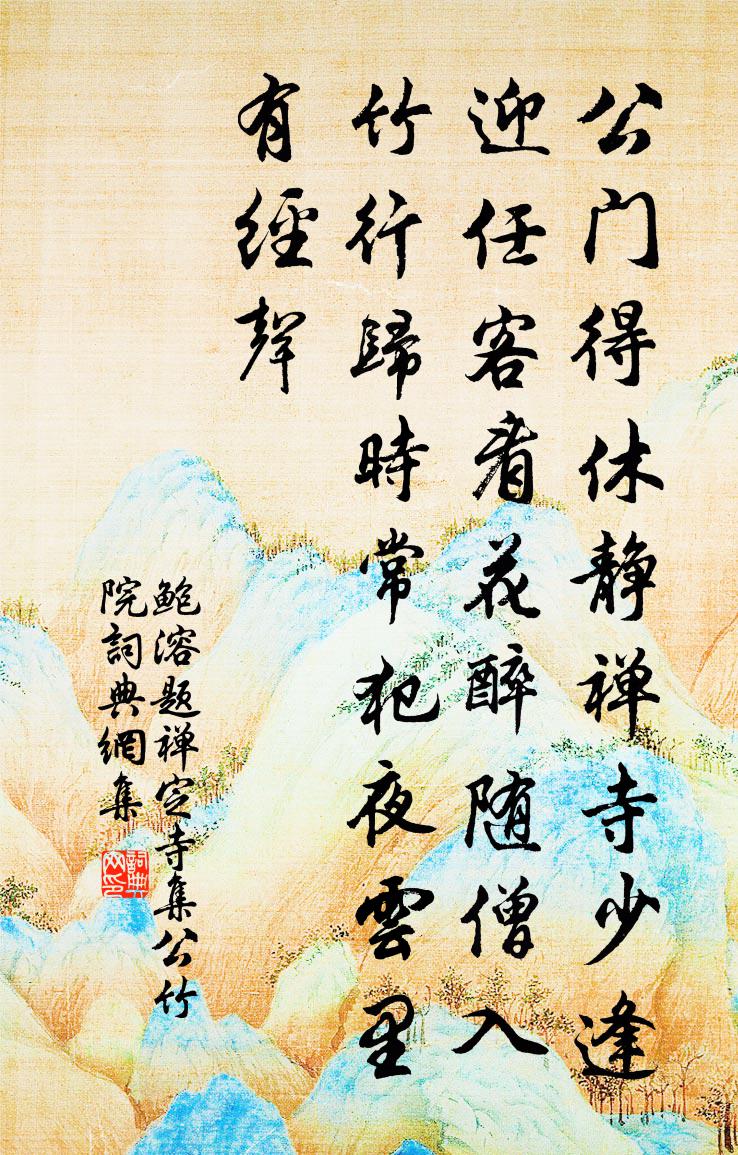 公门得休静禅寺少逢
迎任客看花醉随僧入
竹行歸時常犯夜雲里
有經聲
鲍溶题禅定寺集公竹
院詞典網集
詞典
网印